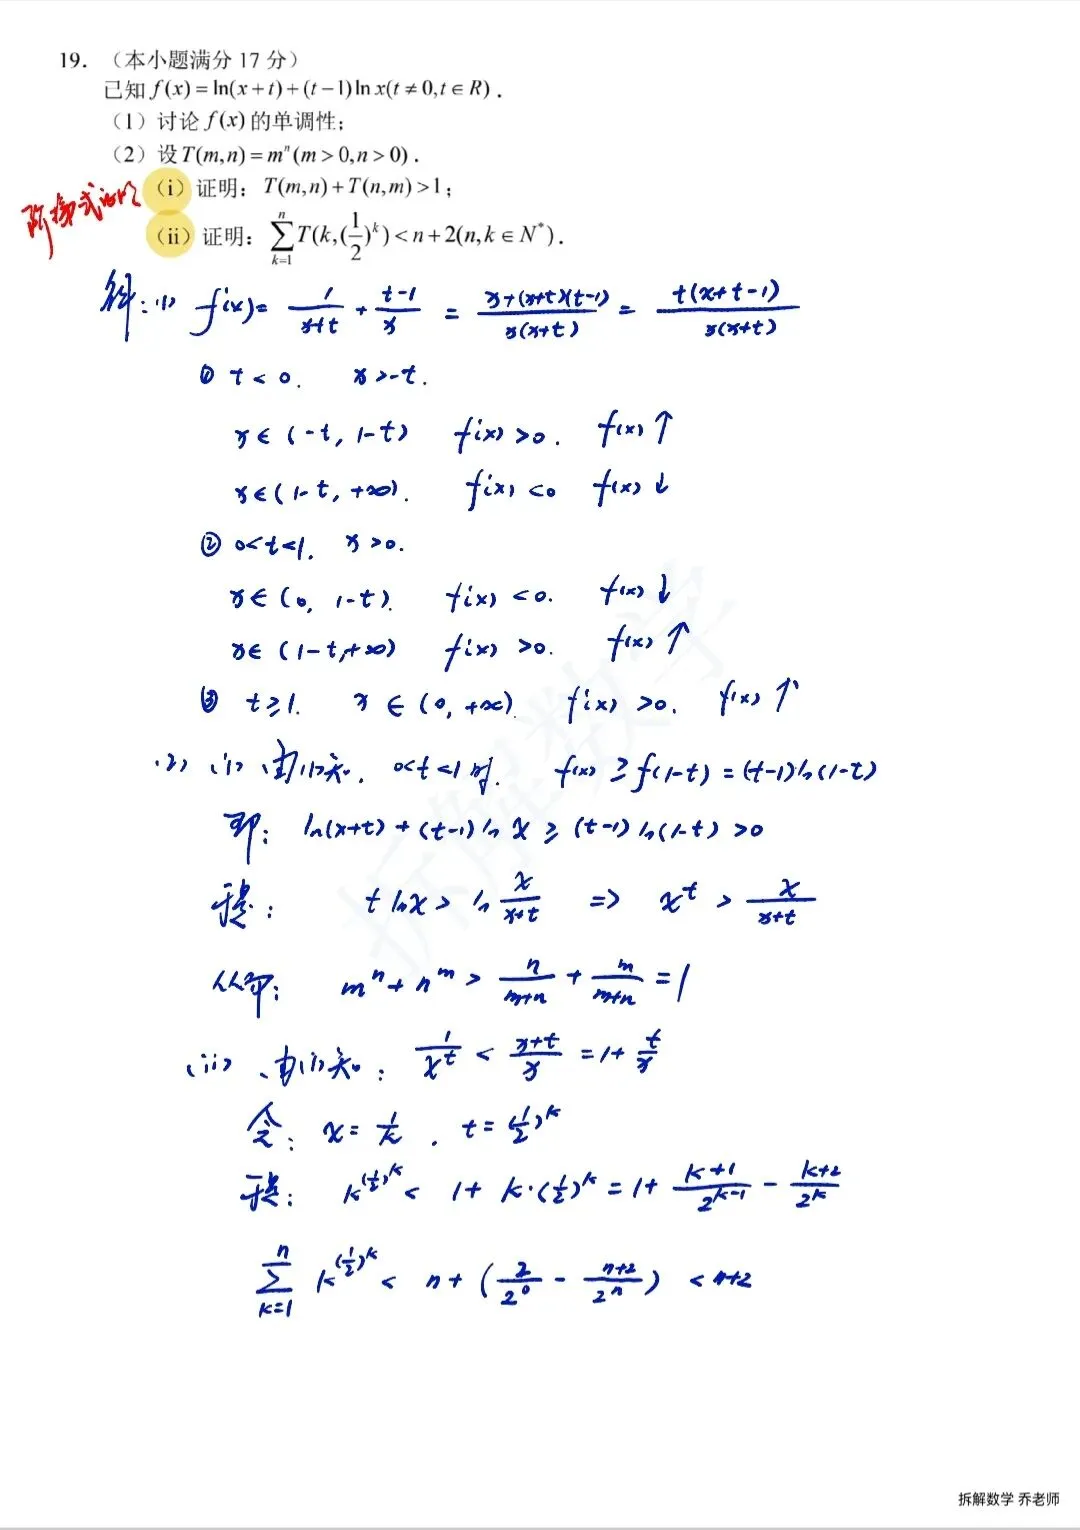 19. （本小题满分 17 分）
已知 f(x) = ln(x+t)+(t−1)ln x(t ≠ 0,t ∈ R) .
（1）讨论 f(x) 的单调性;
（2）设 T(m,n) = mⁿ (m > 0,n > 0) .
（i）证明: T(m,n)+T(n,m) >1 ;
阶梯式设问
（ii）证明: ∑_{k=1}^{n} T(k,(1/2)^k) < n+2(n,k ∈ N*) .
解: (1) f'(x) = 1/(x+t) + (t-1)/x = (x+(x+t)(t-1))/(x(x+t)) = t(x+t-1)/(x(x+t))
① t<0. x>-t.
x∈(-t, 1-t) f'(x)>0. f(x)↑
x∈(1-t, +∞). f'(x)<0 f(x)↓
② 0<t<1. x>0.
x∈(0, 1-t). f'(x)<0. f(x)↓
x∈(1-t,+∞) f'(x)>0. f(x)↑
③ t≥1. x∈(0,+∞). f'(x)>0. f(x)↑
(2) (i) 由(1)知. 0<t<1时. f(x)≥f(1-t)=(t-1)ln(1-t)
即: ln(x+t)+(t-1)ln x ≥ (t-1)ln(1-t) >0
于是: t ln x > ln x/(x+t) => x^t > x/(x+t)
从而: mⁿ+n^m > n/(m+n) + m/(m+n) = 1
(ii) 由(i)知: 1/x^t < (x+t)/x = 1+ t/x
令: x = 1/k . t = (1/2)^k
于是: k^{(1/2)^k} < 1+ k·(1/2)^k = 1+ (k+1)/2^{k-1} - (k+2)/2^k
∑_{k=1}^{n} k^{(1/2)^k} < n+ ( 2/2^0 - (n+2)/2^n ) < n+2
拆解数学
拆解数学 乔老师